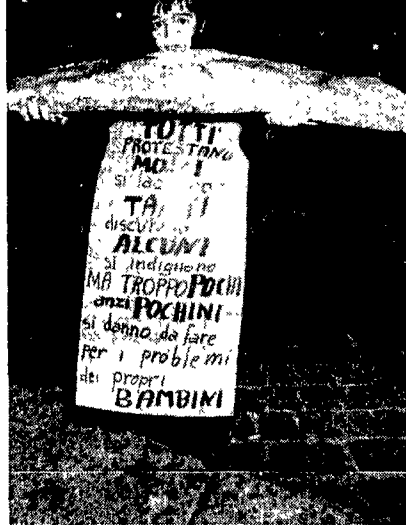 TUTTI
PROTESTANO
si
discut
ALCUNI
si indignano
MA TROPPO POCHI
anzi POCHINI
si danno da fare
Per i problemi
dei propri
BAMBINI